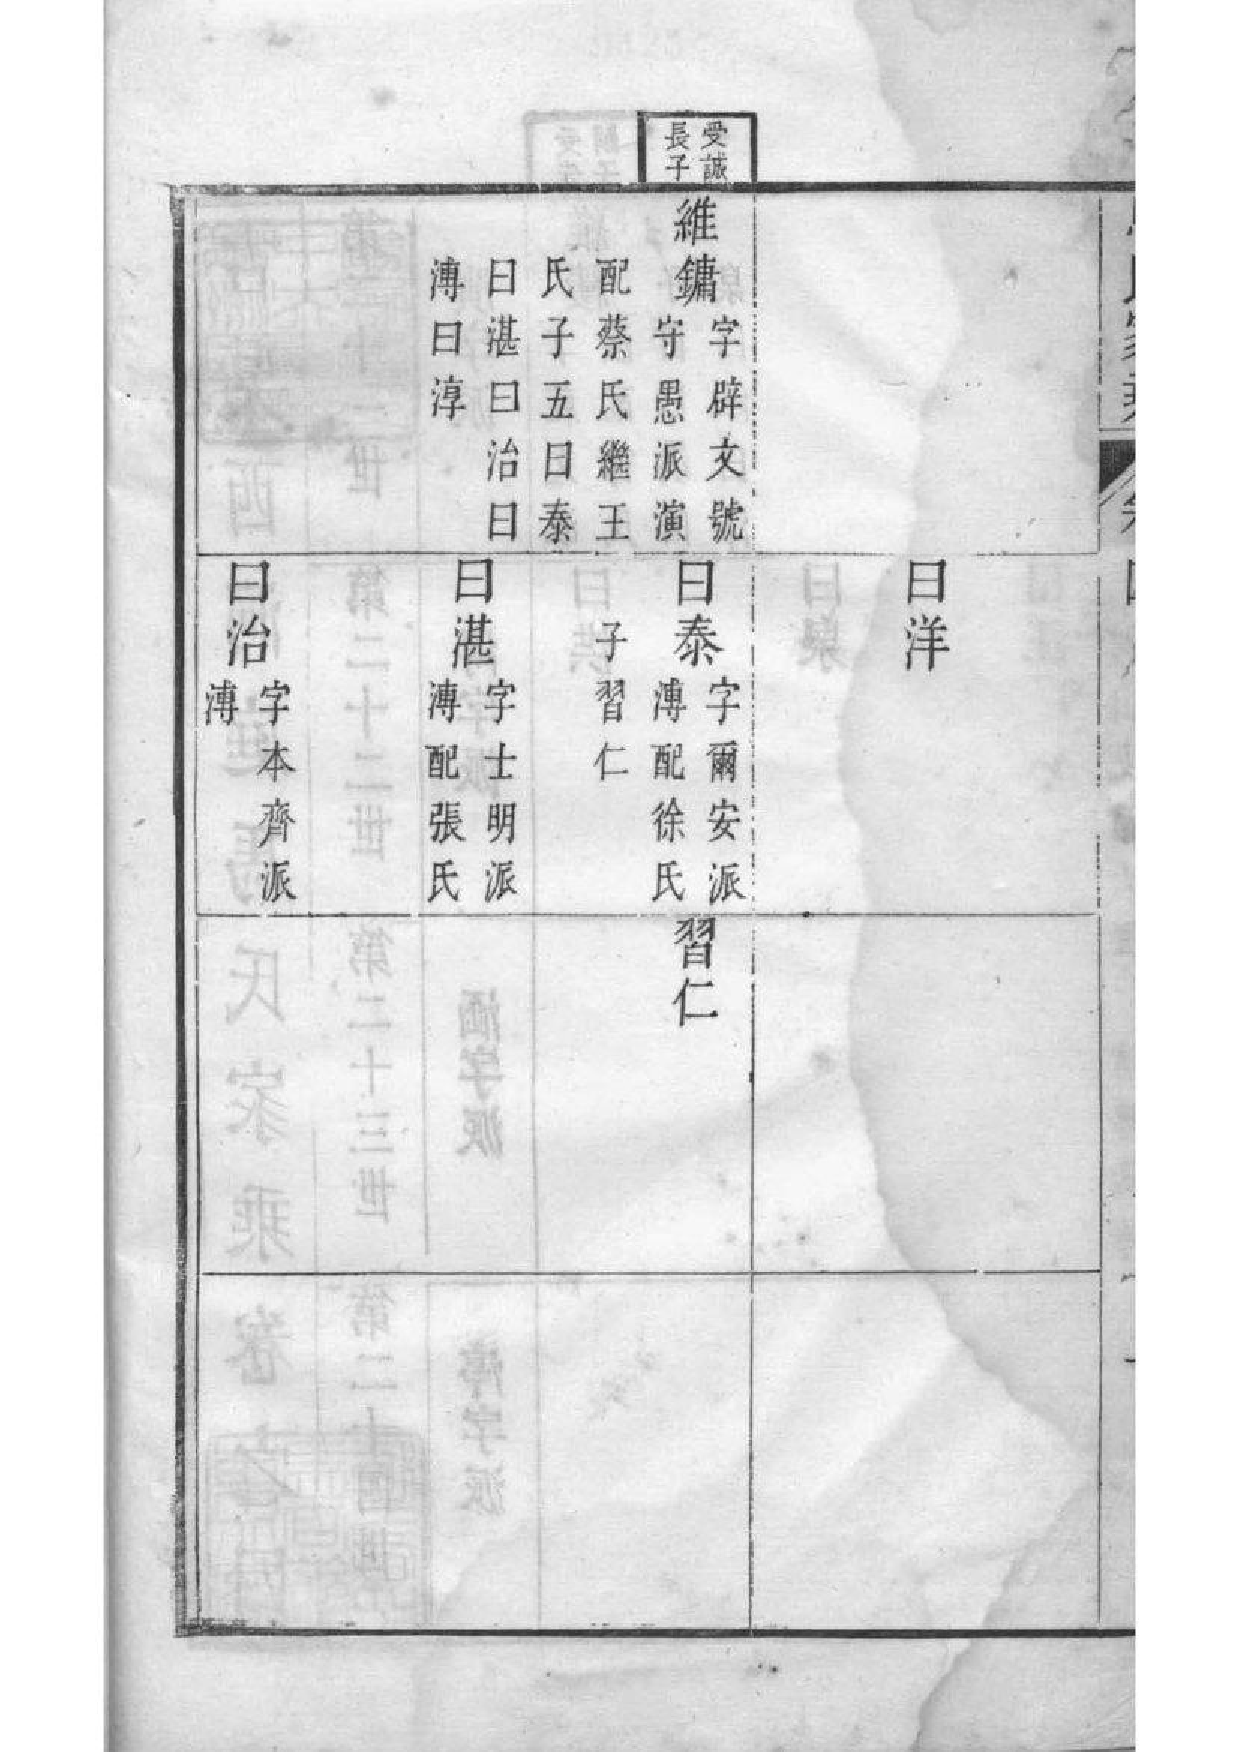 受誠
長子
維鏞
字辟文號
守愚派演
配蔡氏繼王
氏子五曰泰
曰湛曰治曰
漙曰淳
曰洋
曰泰
字爾安派
漙配徐氏
子習仁
曰湛
字士明派
漙配張氏
曰治
字本齊派
漙
習仁